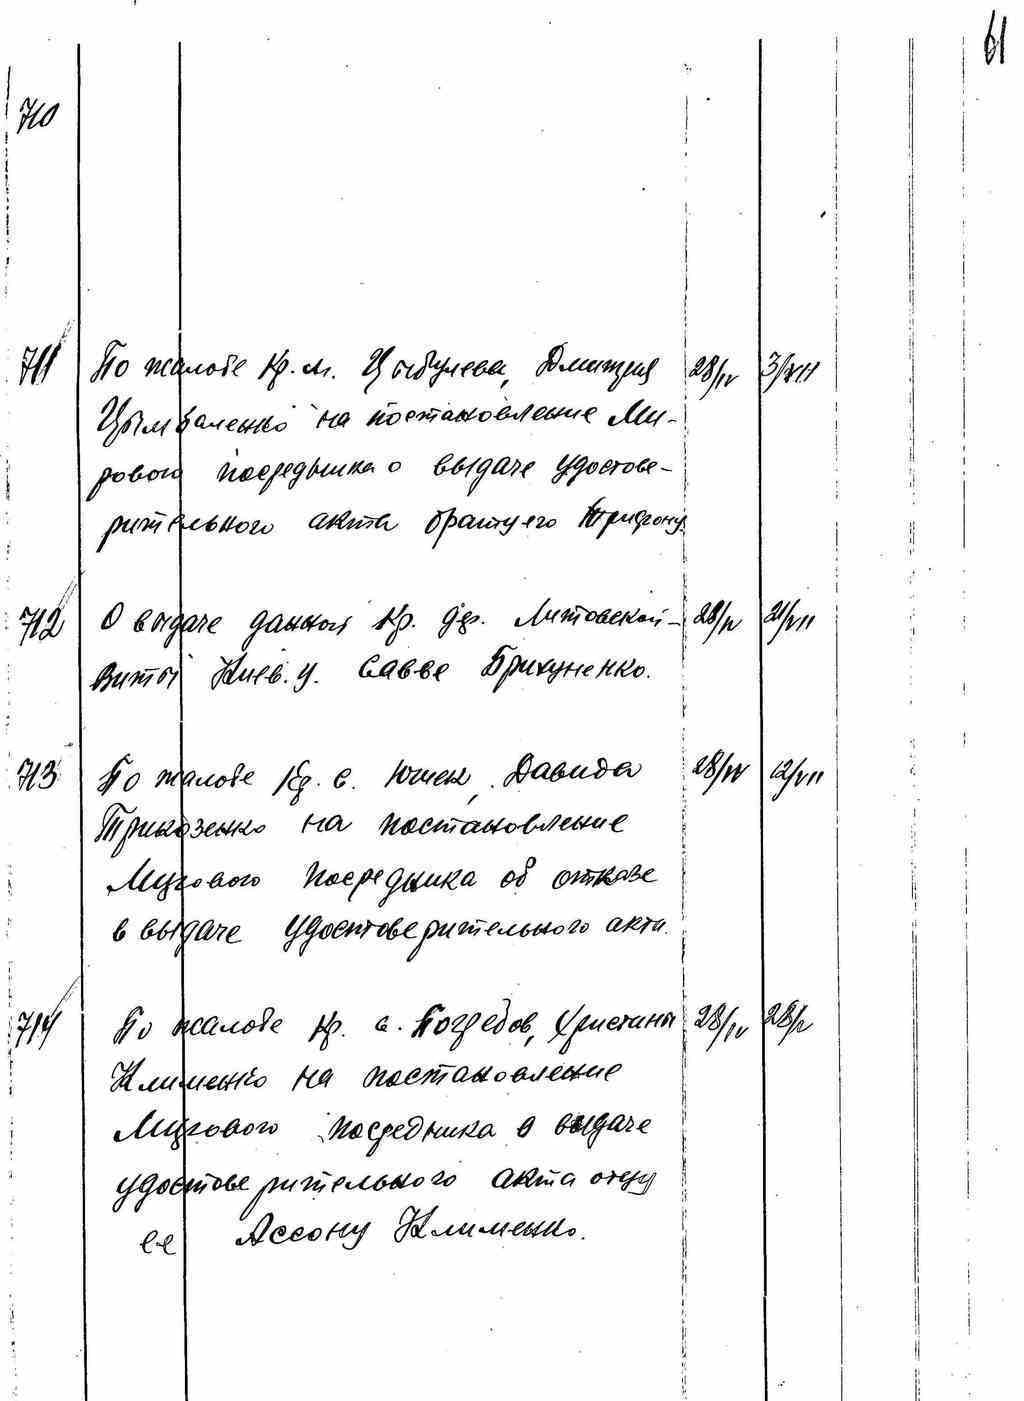 61
710
711 По жалобе Кр. м. Цыбулева, Дмитрия 28/IV 3/VII
Цымбаленко на постановление Ми-
рового посредника о выдаче удостове-
рительного акта брату его Трифону.
712 О выдаче данной Кр. дер. Литовской- 28/IV 21/VII
Виты Киев. у. Савве Брикуненко.
713 По жалобе Кр. с. Юшек, Давида 28/IV 12/VII
Трикозенко на постановление
Мирового Посредника об отказе
в выдаче удостоверительного акта.
714 По жалобе Кр. с. Погребов, Христины 28/IV 28/V
Клименко на постановление
Мирового посредника о выдаче
удостоверительного акта отцу
ее Ассону Клименко.